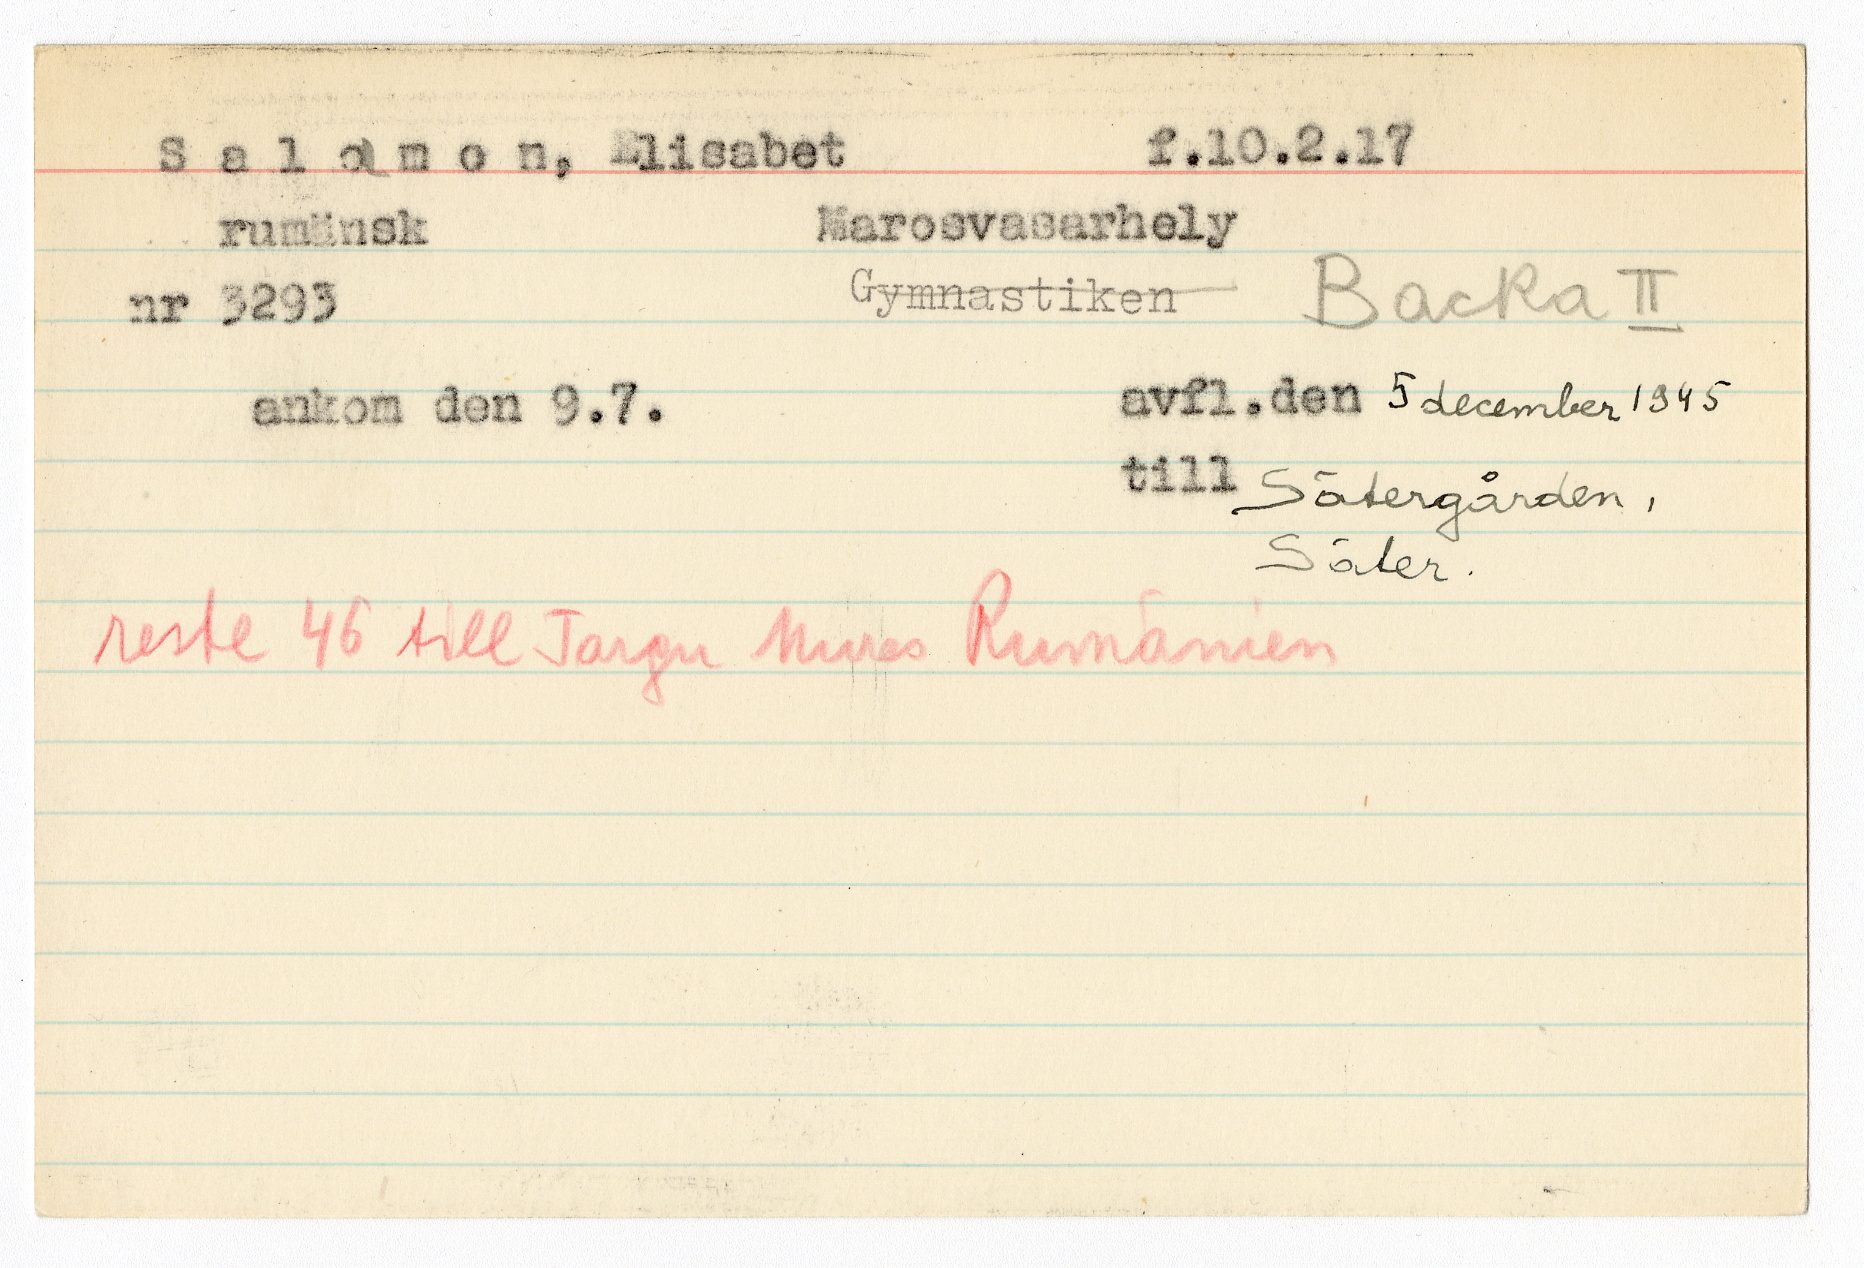 S a l a m o n, Elisabet f.10.2.17
rumänsk Marosvasarhely
nr 3293 Gymnastiken Backa II
ankom den 9.7. avfl.den 5 december 1945
till Sätergården,
Säter.
reste 46 till Targu Mures Rumänien